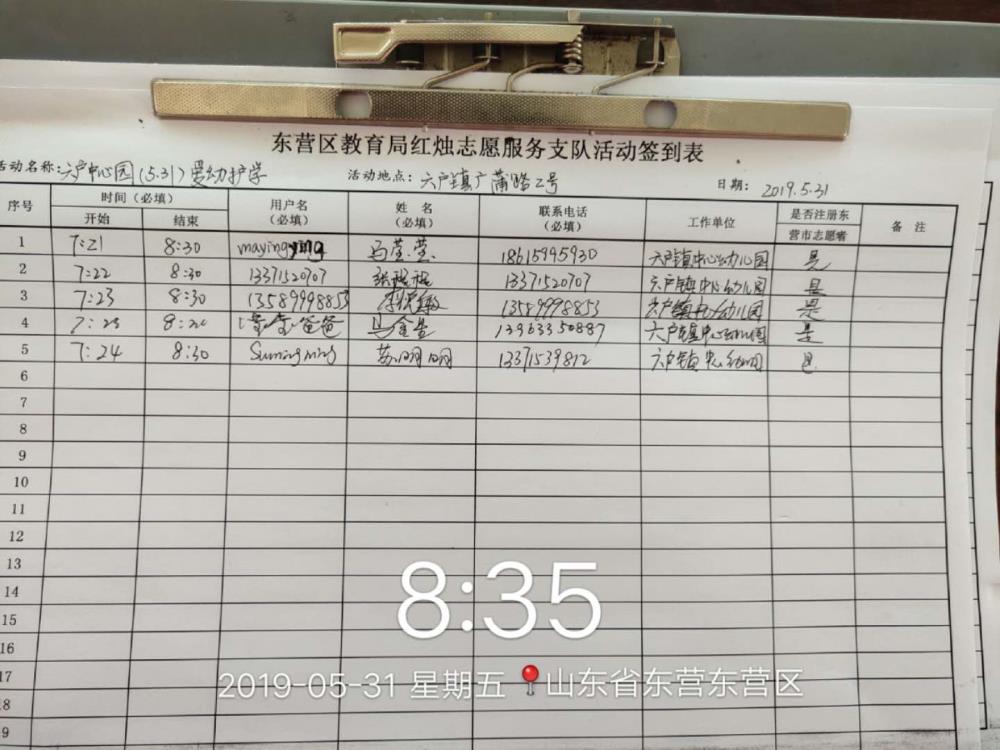 东营区教育局红烛志愿服务支队活动签到表
活动名称：六户中心园（5.31）爱幼护学 活动地点：六户镇广蒲路2号 日期：2019.5.31
序号 时间（必填） 用户名（必填） 姓名（必填） 联系电话（必填） 工作单位 是否注册东营市志愿者 备注
开始 结束
1 7:21 8:30 mayingying 马莹莹 18615995930 六户镇中心幼儿园 是
2 7:22 8:30 13371520707 张 13371520707 六户镇中心幼儿园 是
3 7:23 8:30 13589998853 李 敏 13589998853 六户镇中心幼儿园 是
4 7:23 8:30 爸爸 13963350887 六户镇中心幼儿园 是
5 7:24 8:30 Sumingming 苏明明 13371539812 六户镇中心幼儿园 是
6
7
8
9
10
11
12
13
14
15
16
17
8
9
8:35
2019-05-31 星期五 山东省东营东营区